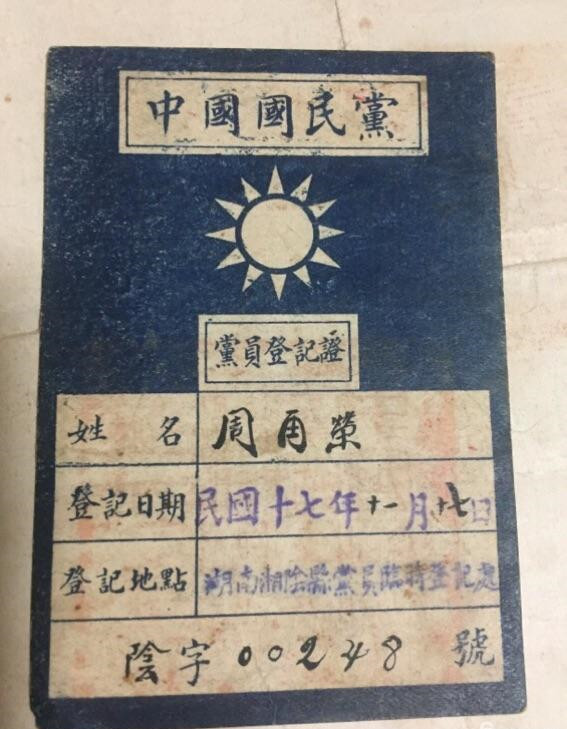 中國國民黨
黨員登記證
姓名 周甬榮
登記日期 民國十七年十一月十七日
登記地點 湖南湘陰縣黨員臨時登記處
陰字00248號